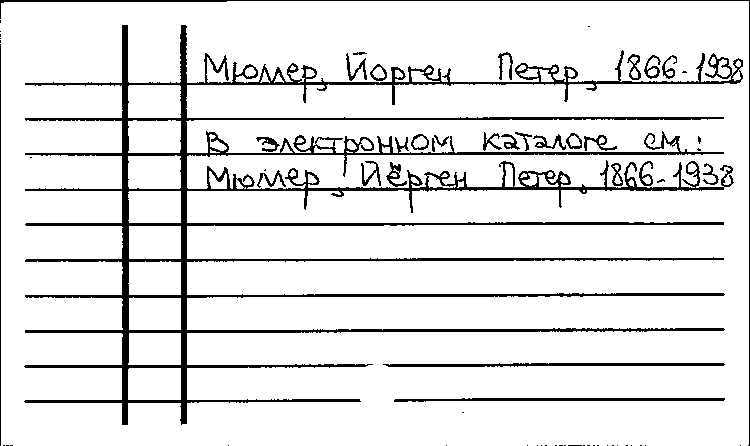 Мюллер, Йорген Петер, 1866-1938
В электронном каталоге см.:
Мюллер, Йёрген Петер, 1866-1938